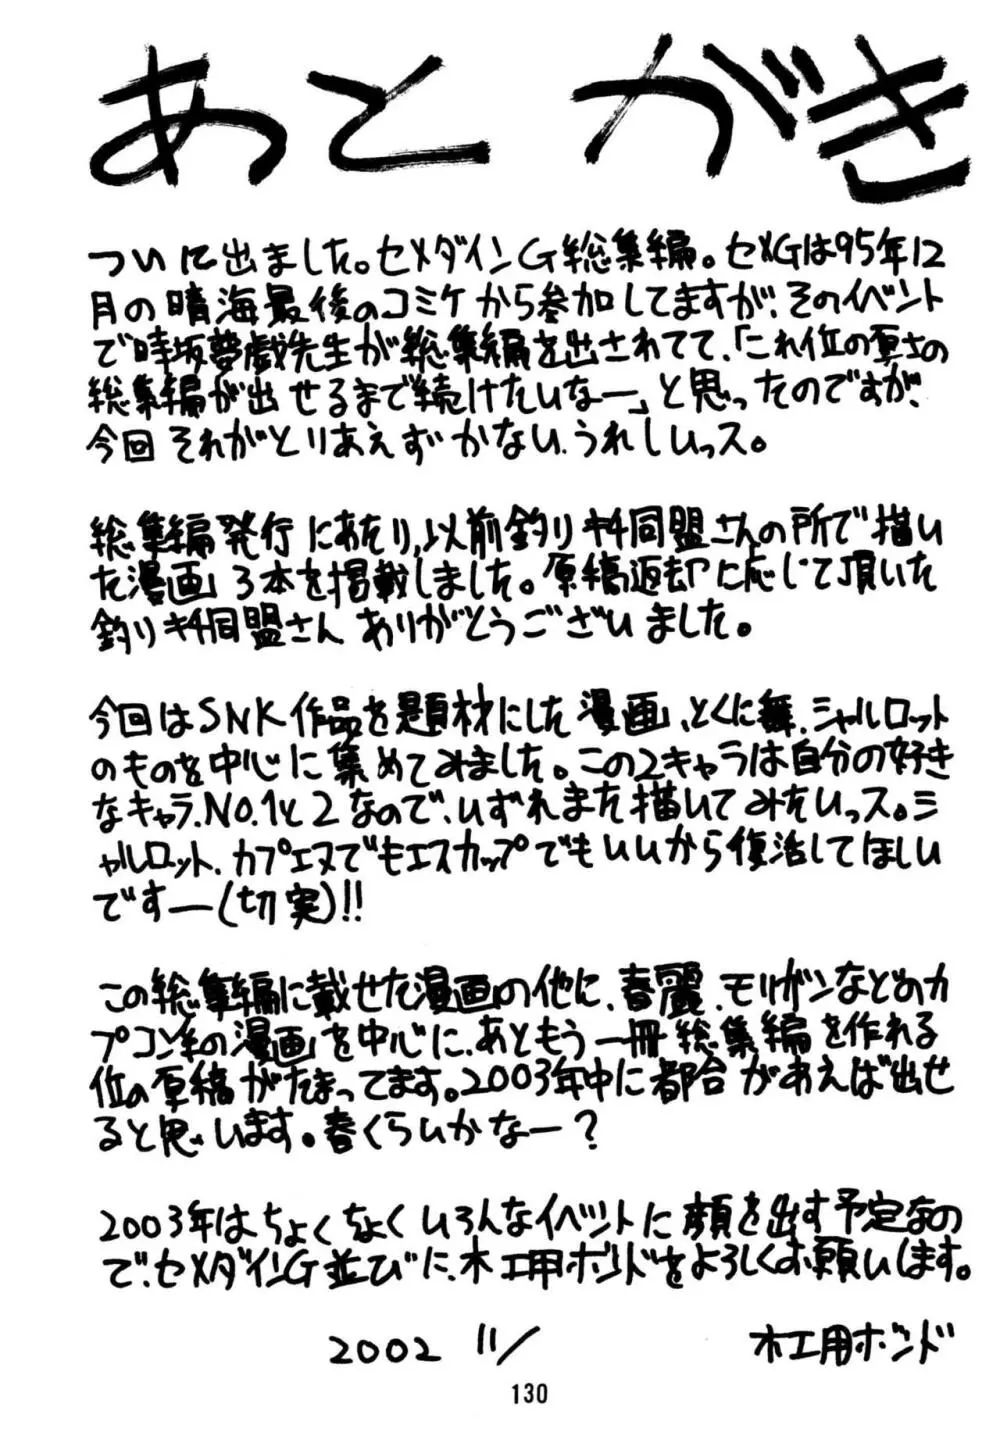 あとがき
ついに出ました。セメダインG総集編。セメGは95年12
月の晴海最後のコミケから参加してますが、そのイベント
で時坂夢戯先生が総集編を出されてて、「これ位の厚さの
総集編が出せるまで続けたいなー」と思ったのですが、
今回それがとりあえずかない、うれしいっス。
総集編発行にあたり、以前釣りキチ同盟さんの所で描い
た漫画3本を掲載しました。原稿返却に応じて頂いた
釣りキチ同盟さんありがとうございました。
今回はSNK作品を題材にした漫画、とくに舞、シャルロット
のものを中心に集めてみました。この2キャラは自分の好き
なキャラ、NO.1と2なので、いずれまた描いてみたいっス。シ
ャルロット、カプエヌでもエスカップでもいいから復活してほしい
ですー(切実)!!
この総集編に載せた漫画の他に、春麗、モリガンなどのカ
プコン系の漫画を中心に、あともう一冊総集編を作れる
位の原稿がたまってます。2003年中に都合があえば出せ
ると思います。春くらいかなー?
2003年はちょくちょくいろんなイベントに顔を出す予定なの
で、セメダインG並びに、木工用ボンドをよろしくお願いします。
2002 11/ 木工用ボンド
130